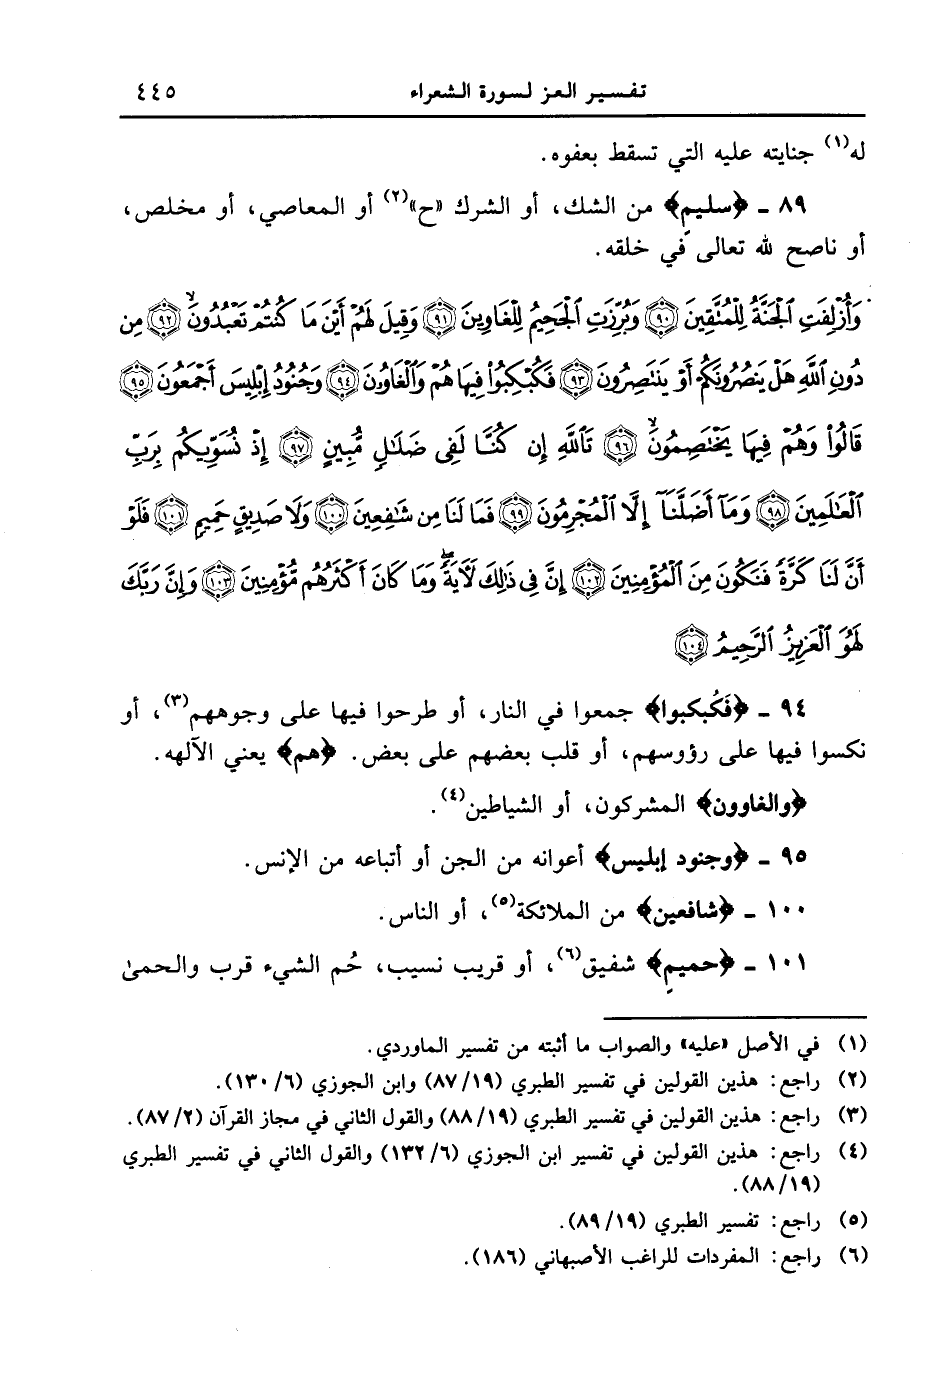 تفسير العز لسورة الشعراء ٤٤٥
له(١) جنايته عليه التي تسقط بعفوه.
٨٩ ـ ﴿سليمٍ﴾ من الشك، أو الشرك «ح»(٢) أو المعاصي، أو مخلص،
أو ناصح لله تعالى في خلقه.
وَأُزْلِفَتِ ٱلْجَنَّةُ لِلْمُتَّقِينَ ﴿٩٠﴾ وَبُرِّزَتِ ٱلْجَحِيمُ لِلْغَاوِينَ ﴿٩١﴾ وَقِيلَ لَهُمْ أَيْنَ مَا كُنتُمْ تَعْبُدُونَ ۙ ﴿٩٢﴾ مِن
دُونِ ٱللَّهِ هَلْ يَنصُرُونَكُمْ أَوْ يَنتَصِرُونَ ﴿٩٣﴾ فَكُبْكِبُوا۟ فِيهَا هُمْ وَٱلْغَاوُۥنَ ﴿٩٤﴾ وَجُنُودُ إِبْلِيسَ أَجْمَعُونَ ﴿٩٥﴾
قَالُوا۟ وَهُمْ فِيهَا يَخْتَصِمُونَ ۙ ﴿٩٦﴾ تَٱللَّهِ إِن كُنَّا لَفِى ضَلَٰلٍ مُّبِينٍ ﴿٩٧﴾ إِذْ نُسَوِّيكُم بِرَبِّ
ٱلْعَٰلَمِينَ ﴿٩٨﴾ وَمَآ أَضَلَّنَآ إِلَّا ٱلْمُجْرِمُونَ ﴿٩٩﴾ فَمَا لَنَا مِن شَٰفِعِينَ ﴿١٠٠﴾ وَلَا صَدِيقٍ حَمِيمٍ ﴿١٠١﴾ فَلَوْ
أَنَّ لَنَا كَرَّةً فَنَكُونَ مِنَ ٱلْمُؤْمِنِينَ ﴿١٠٢﴾ إِنَّ فِى ذَٰلِكَ لَءَايَةً ۖ وَمَا كَانَ أَكْثَرُهُم مُّؤْمِنِينَ ﴿١٠٣﴾ وَإِنَّ رَبَّكَ
لَهُوَ ٱلْعَزِيزُ ٱلرَّحِيمُ ﴿١٠٤﴾
٩٤ ـ ﴿فَكُبكبوا﴾ جمعوا في النار، أو طرحوا فيها على وجوههم(٣)، أو
نكسوا فيها على رؤوسهم، أو قلب بعضهم على بعض. ﴿هم﴾ يعني الآلهه.
﴿والغاوون﴾ المشركون، أو الشياطين(٤).
٩٥ ـ ﴿وجنود إبليس﴾ أعوانه من الجن أو أتباعه من الإنس.
١٠٠ ـ ﴿شافعين﴾ من الملائكة(٥)، أو الناس.
١٠١ ـ ﴿حميمٍ﴾ شفيق(٦)، أو قريب نسيب، حُم الشيء قرب والحمىٰ
(١) في الأصل «عليه» والصواب ما أثبته من تفسير الماوردي.
(٢) راجع: هذين القولين في تفسير الطبري (٨٧/١٩) وابن الجوزي (١٣٠/٦).
(٣) راجع: هذين القولين في تفسير الطبري (٨٨/١٩) والقول الثاني في مجاز القرآن (٨٧/٢).
(٤) راجع: هذين القولين في تفسير ابن الجوزي (١٣٢/٦) والقول الثاني في تفسير الطبري
(٨٨/١٩).
(٥) راجع: تفسير الطبري (٨٩/١٩).
(٦) راجع: المفردات للراغب الأصبهاني (١٨٦).